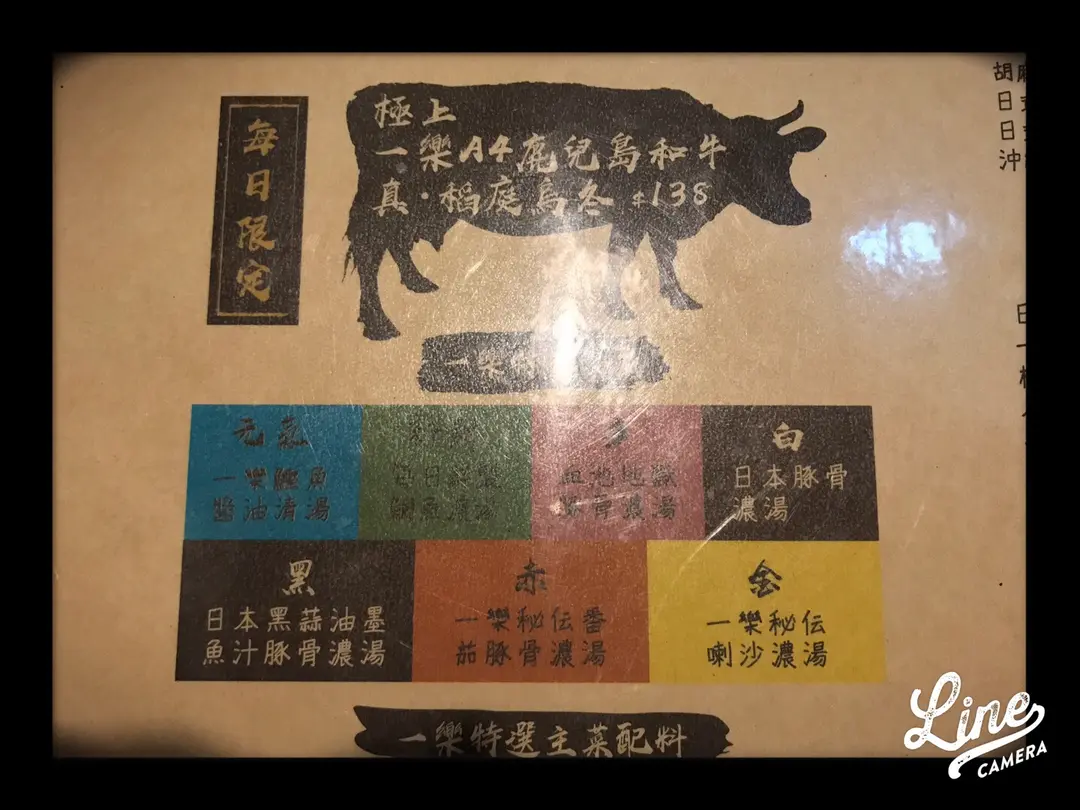 每日限定
極上
一樂A4鹿兒島和牛
真·稻庭烏冬 $138
一樂
元氣
一樂鰹魚
醬油清湯
每日鮮製
鯛魚濃湯
血池地獄
豚骨濃湯
白
日本豚骨
濃湯
黑
日本黑蒜油墨
魚汁豚骨濃湯
赤
一樂秘伝番
茄豚骨濃湯
金
一樂秘伝
喇沙濃湯
一樂特選主菜配料
胡麻
日
日
沖
日
一
Line
CAMERA